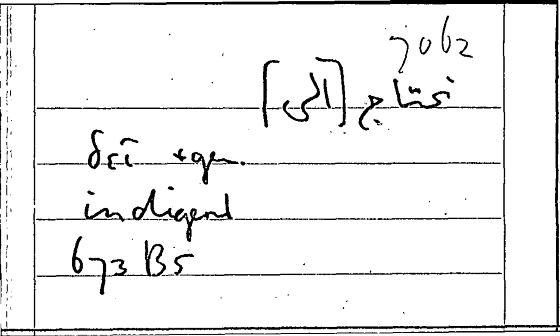 7062
تحتاج [الى]
δεῖ +gen.
indigent
673 B5